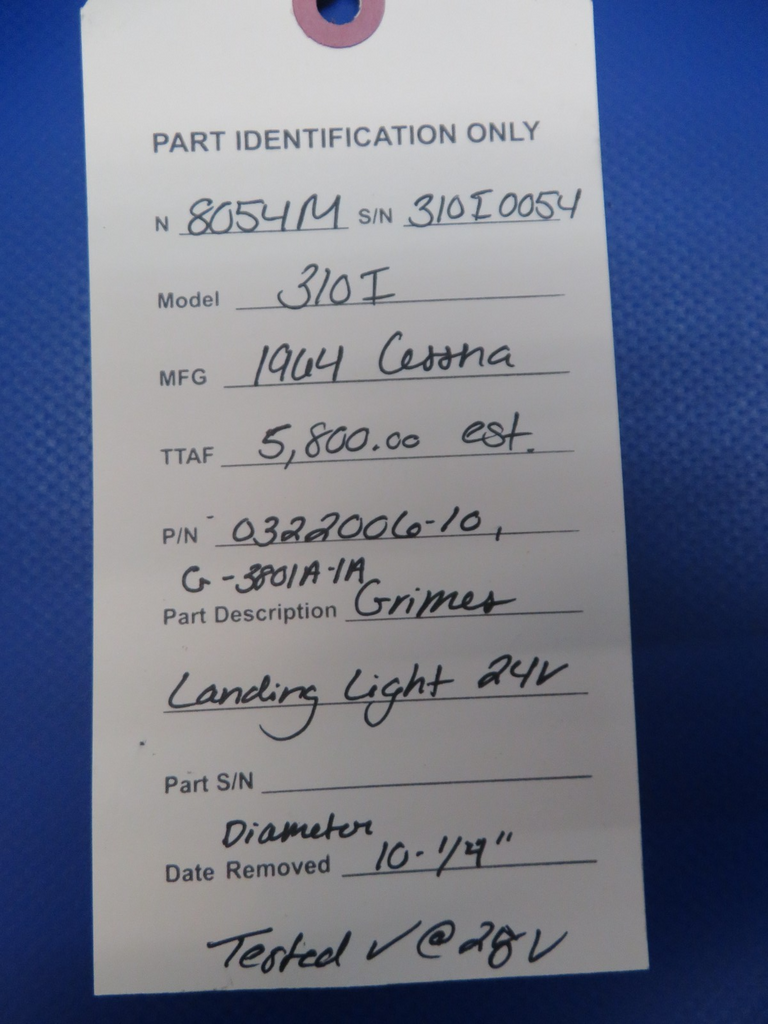 PART IDENTIFICATION ONLY
N 8054M S/N 310I0054
Model 310I
MFG 1964 Cessna
TTAF 5,800.00 est.
P/N - 0322006-10,
G-3801A-1A
Part Description Grimes
Landing Light 24V
Part S/N
Diameter
Date Removed 10-1/4"
Tested ✓ @ 28V